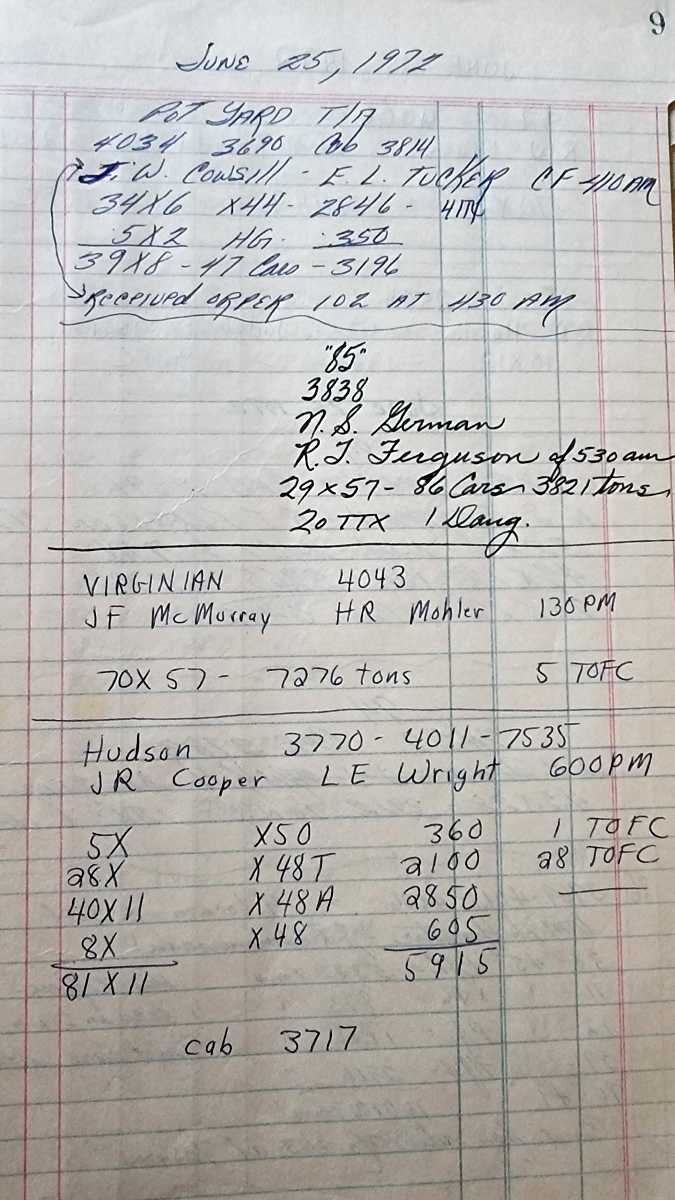 9
JUNE 25, 1972
POT YARD T/A
4034 3690 Cab 3814
J. W. COWSILL - E. L. TUCKER CF 410 AM
34X6 X44 - 2846 - 4TTX
5X2 HG. 350
39X8 - 47 Cars - 3196
Received ORDER 102 AT 430 AM
"85"
3838
N. S. German
R. T. Ferguson cf 530 am
29 x 57 - 86 Cars 3821 tons
20 TTX 1 Dang.
VIRGINIAN 4043
JF McMurray HR Mohler 130 PM
70X 57 - 7276 tons 5 TOFC
Hudson 3770 - 4011 - 7535
JR Cooper LE Wright 600PM
5X X50 360 1 TOFC
28X X 48T 2100 28 TOFC
40X11 X 48A 2850
8X X 48 605
81 X 11 5915
cab 3717